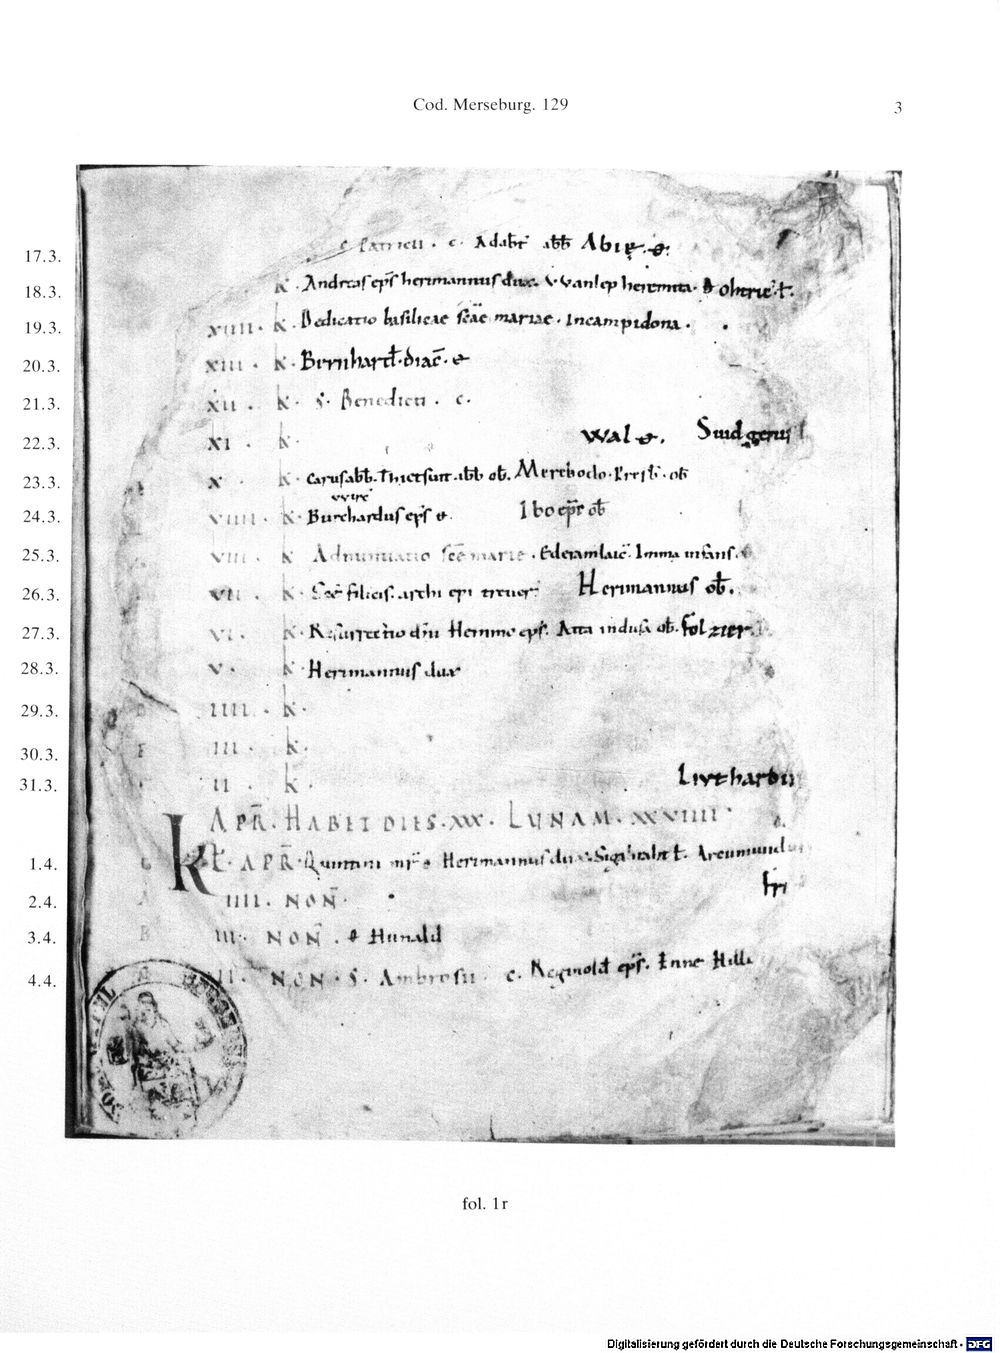 Cod. Merseburg. 129
3
17.3. Patricii . c. Adalb̄t abb̄ Abię. ꝋ.
18.3. K. Andreas ep̄s herimannus dux. VVanlep heremita. ohtric
19.3. XIIII. K. Dedicatio basilicae sc̄ae mariae. Incampidona.
20.3. XIII. K. Bernhard. diac̄. ꝋ
21.3. XII. K. S. Benedicti . c.
22.3. XI. K. Wal ꝋ. Suidgerus
23.3. X. K. Carus abb̄. Thietsuit abb̄ ob̄. Merebodo. pr̄esb̄. ob̄
24.3. VIIII. K. Burchardus ep̄s ꝋ. Ibo ep̄c ob̄
vvirc̄
25.3. VIII. K Adnuntiatio sc̄e marie. Ederam laic̄. Imma infans.
26.3. VII. K. Sc̄i filicis. archi epi treuer̄. Herimannus ob̄.
27.3. VI. K. Resurrectio dn̄i Hemmo ep̄s. Atta inclusa ob̄. folzier.
28.3. V. K. Herimannus dux
29.3. IIII. K.
30.3. III. K.
31.3. II. K. Liuthardus
APR̄. HABET DIES. XXX. LUNAM. XXVIIII
1.4. KL̄. APR̄. Quintini mr̄ Herimannus dux. Sigibaht Arcumundus
2.4. A IIII. NON̄.
3.4. B III. NON̄. ꝋ Hunald
4.4. II. NON. S. Ambrosii . c. Reginold ep̄s. Enne Hilli
fol. 1r
Digitalisierung gefördert durch die Deutsche Forschungsgemeinschaft - DFG